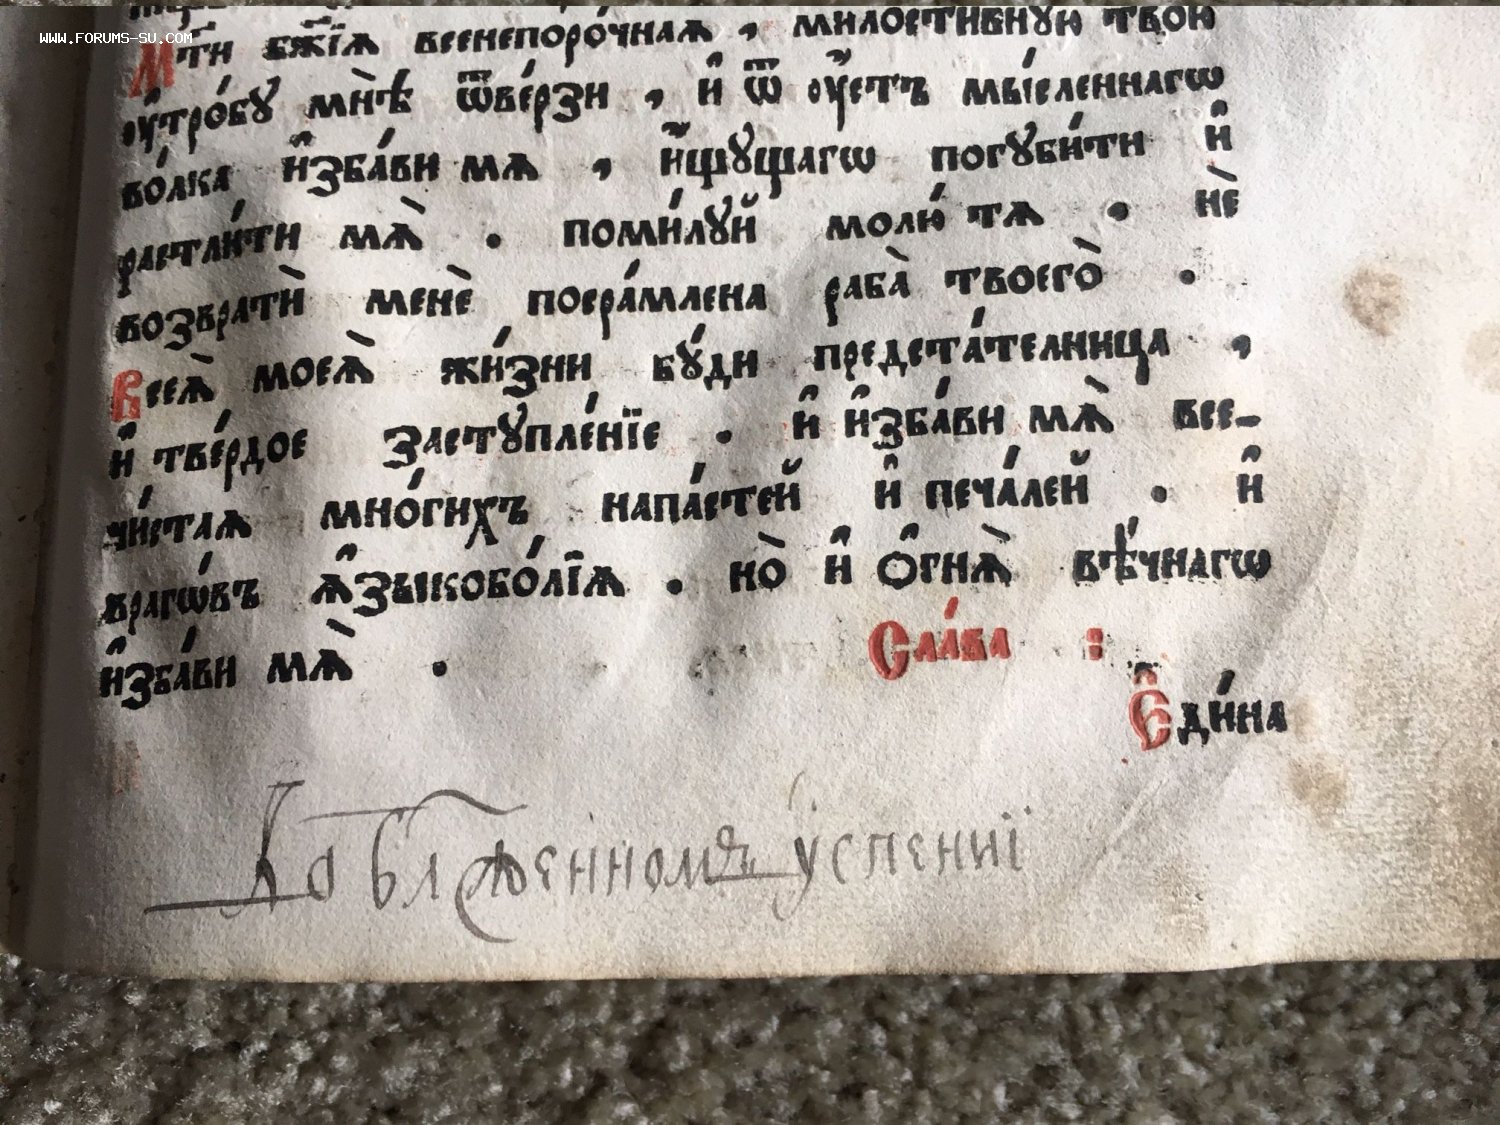 WWW.FORUMS-SU.COM
Мт҃и бж҃їѧ всенепоро́чнаѧ , милостивную твою
ᲂу҆тро́бꙋ мнѣ̀ ѿве́рзи , и҆ ѿ ᲂу҆стъ мы́сленнагѡ
во́лка и҆зба́ви мѧ , и҆щꙋщагѡ погꙋби́ти и҆
растли́ти мѧ̀ . поми́лꙋй молю́ тѧ . нѐ
возвратѝ менѐ посра́млена раба̀ твоего̀ .
Всеѧ̀ моеѧ̀ жи́зни бꙋ́ди предста́телница ,
и҆ тве́рдое застꙋпле́нїе . и҆ и҆зба́ви мѧ̀ все-
чи́стаѧ мно́гихъ напа́стей и҆ печа́лей . и҆
врагѡ́въ ѧ҆зыкобо́лїѧ . но̀ и҆ ѻ҆гнѧ̀ вѣ́чнагѡ
и҆зба́ви мѧ̀ .
Сла́ва :
Е҆ди́на
Во блженномъ успенїї